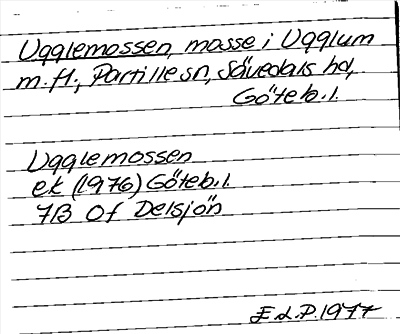 Ugglemossen, mosse i Ugglum
m.fl., Partille sn, Sävedals hd,
Göteb.l.
Ugglemossen
ek (1976) Göteb.l.
7B 0f Delsjön
E.d.P. 1977